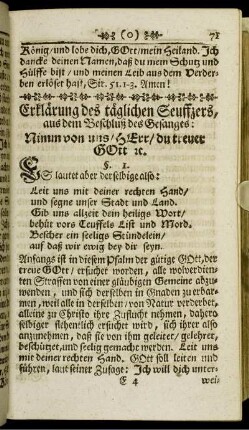 (o) 71
König/ und lobe dich, GOtt/ mein Heiland. Ich
dancke deinen Namen, daß du mein Schutz und
Hülffe bist / und meinen Leib aus dem Verder-
ben erlöset hast, Sir. 51. 1-3. Amen!
Erklärung des täglichen Seufftzers,
aus dem Beschluß des Gesangs:
Nimm von uns/ HErr/ du treuer
GOtt ꝛc.
§. 1.
ES lautet aber derselbige also:
Leit uns mit deiner rechten Hand/
und segne unser Stadt und Land.
Gib uns allzeit dein heiligs Wort/
behüt vors Teuffels List und Mord.
Bescher ein seeligs Stündelein/
auf daß wir ewig bey dir seyn.
Anfangs ist in diesem Psalm der gütige GOtt, der
treue GOtt/ ersuchet worden, alle wolverdien-
ten Straffen von einer gläubigen Gemeine abzu-
wenden, und sich derselben in Gnaden zu erbar-
men, weil alle in derselben / von Natur verderbet,
alleine zu Christo ihre Zuflucht nehmen, dahero
selbiger flehentlich ersuchet wird, sich ihrer also
anzunehmen, daß sie von ihm geleitet/ gelehret,
beschützet/und seelig gemacht werden. Leit uns
mit deiner rechten Hand. GOtt soll leiten und
führen, laut seiner Zusage: Ich will dich unter-
E 4 wei-